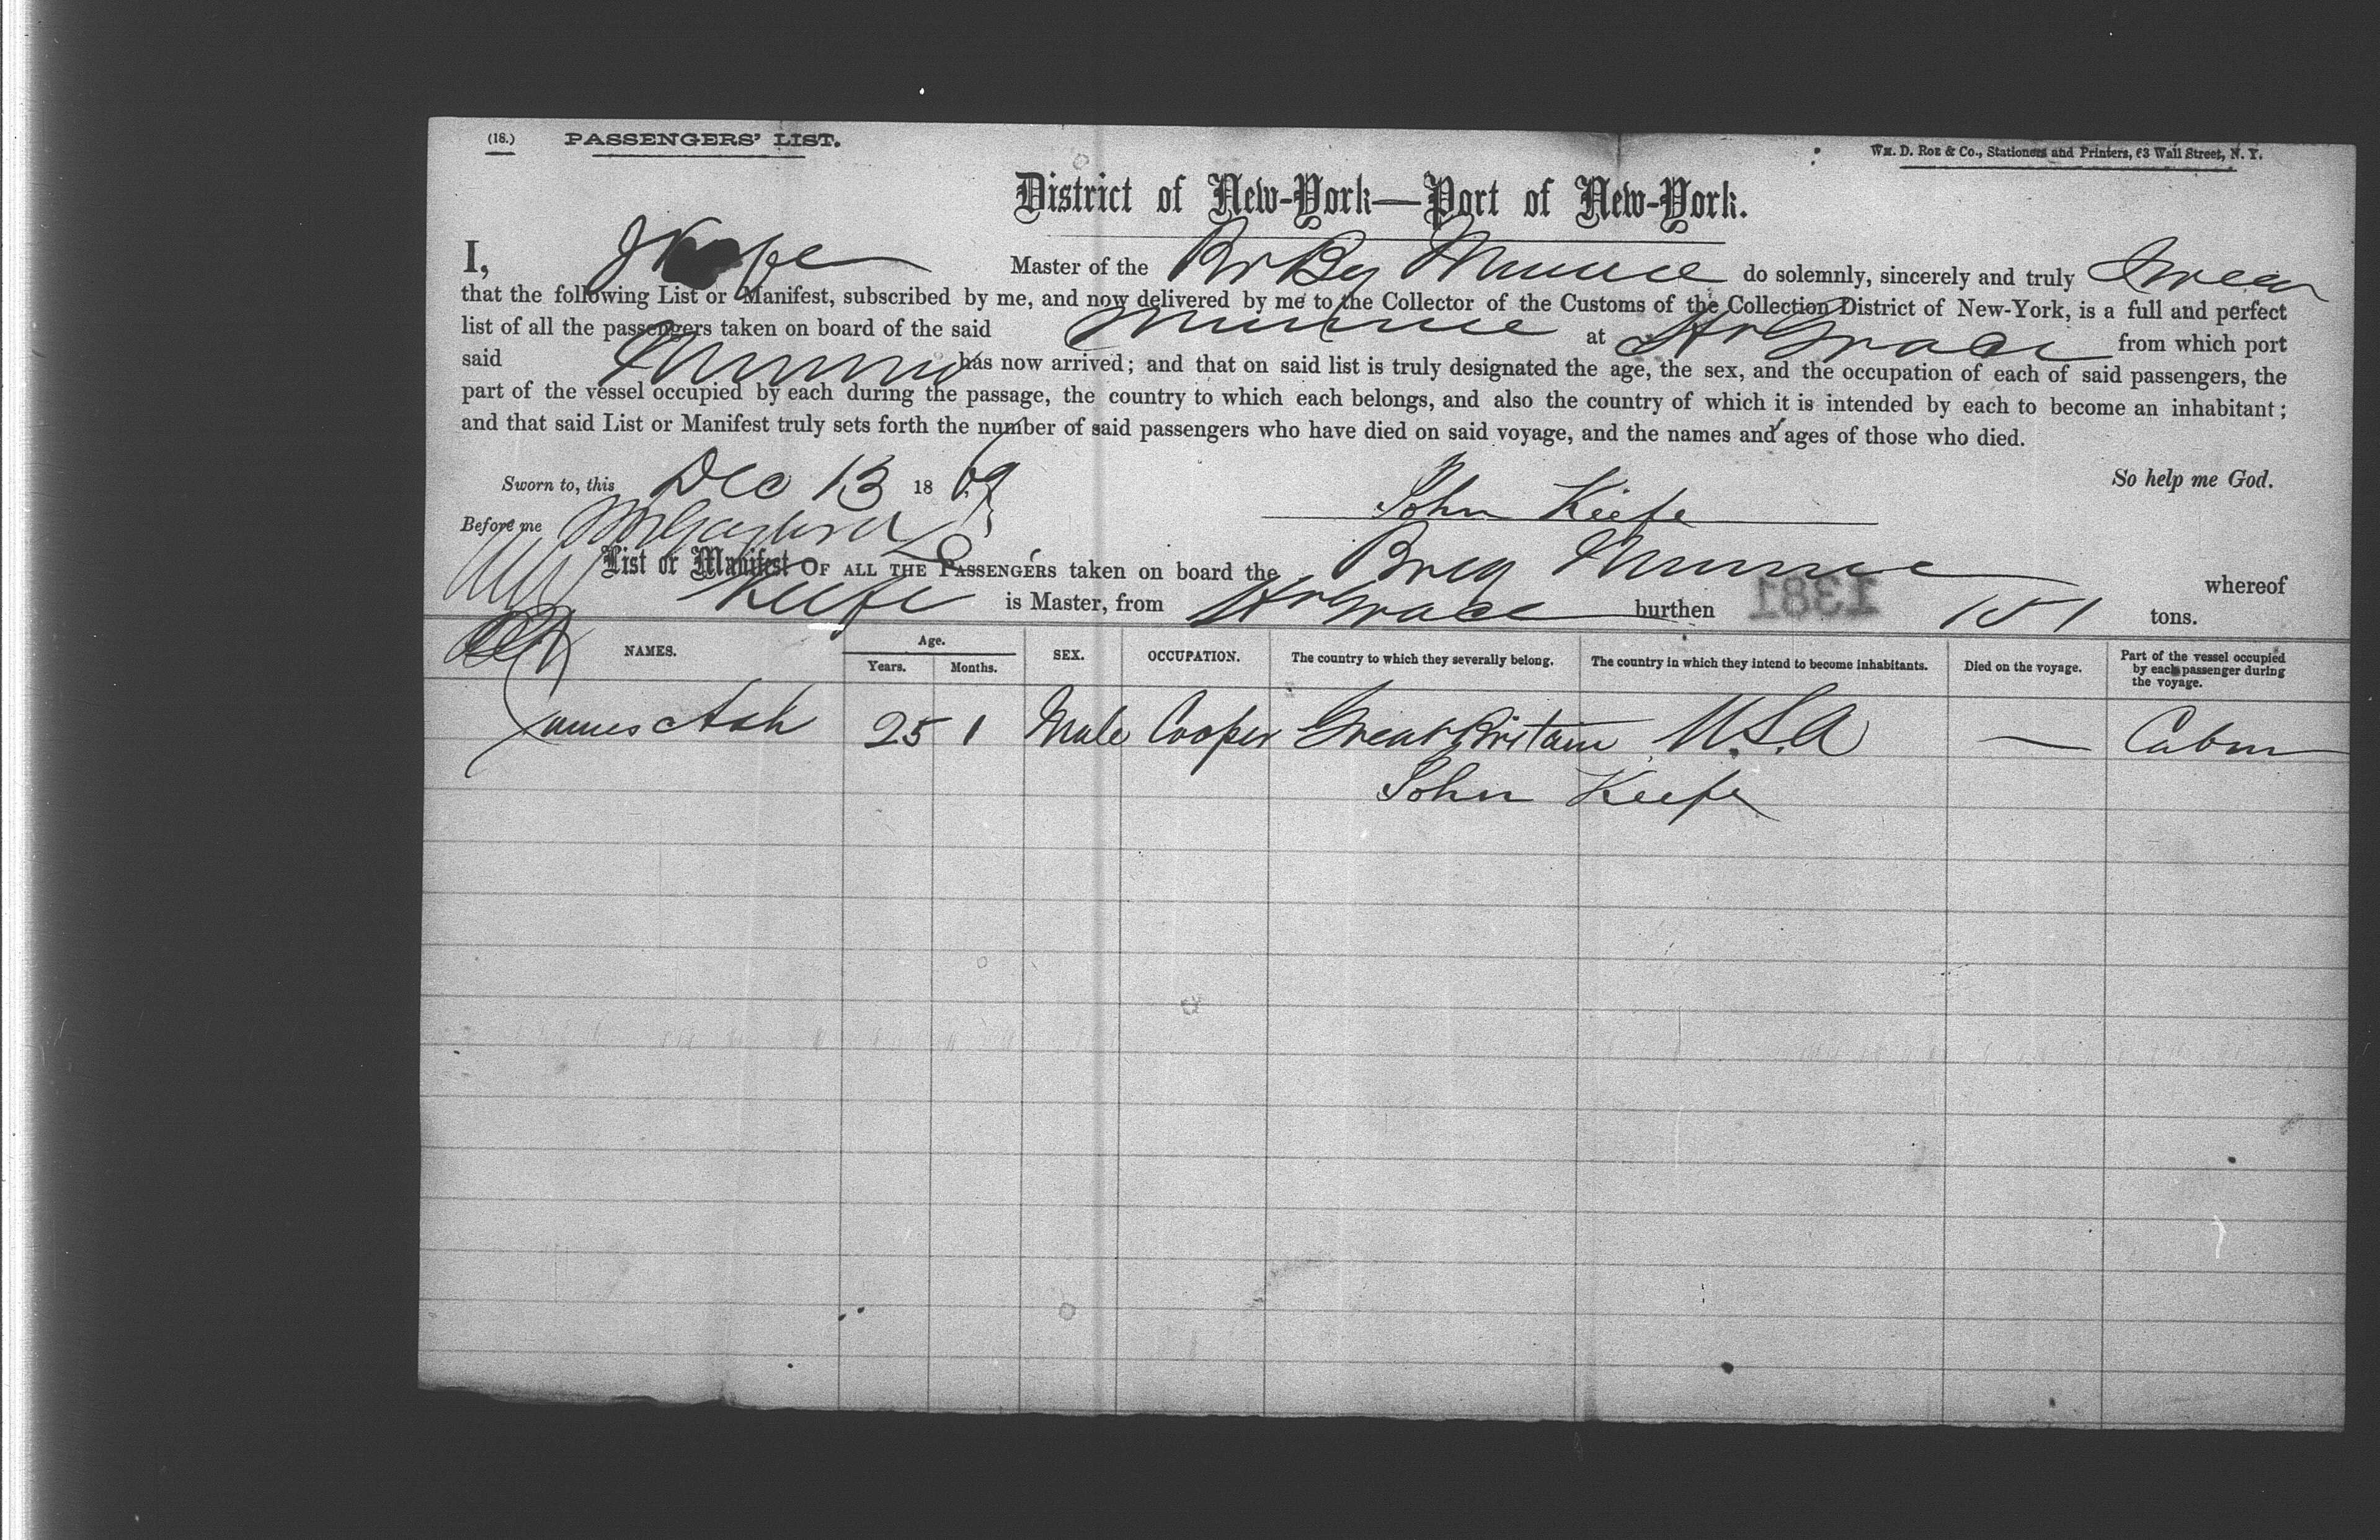 (18.) PASSENGERS' LIST. Wm. D. Roe & Co., Stationers and Printers, 63 Wall Street, N. Y.
District of New-York—Port of New-York.
I, J Keefe Master of the Br Bg Minnie do solemnly, sincerely and truly Swear
that the following List or Manifest, subscribed by me, and now delivered by me to the Collector of the Customs of the Collection District of New-York, is a full and perfect
list of all the passengers taken on board of the said Minnie at Hr Grace from which port
said Minnie has now arrived; and that on said list is truly designated the age, the sex, and the occupation of each of said passengers, the
part of the vessel occupied by each during the passage, the country to which each belongs, and also the country of which it is intended by each to become an inhabitant;
and that said List or Manifest truly sets forth the number of said passengers who have died on said voyage, and the names and ages of those who died.
Sworn to, this Dec 13 1869 So help me God.
John Keefe
Before me
List or Manifest OF ALL THE PASSENGERS taken on board the Brig Minnie whereof
Keefe is Master, from Hr Grace burthen 1381 151 tons.
NAMES. Age. Years. Months. SEX. OCCUPATION. The country to which they severally belong. The country in which they intend to become inhabitants. Died on the voyage. Part of the vessel occupied by each passenger during the voyage.
James Ash 25 1 Male Cooper Great Britain U.S.A — Cabin
John Keefe